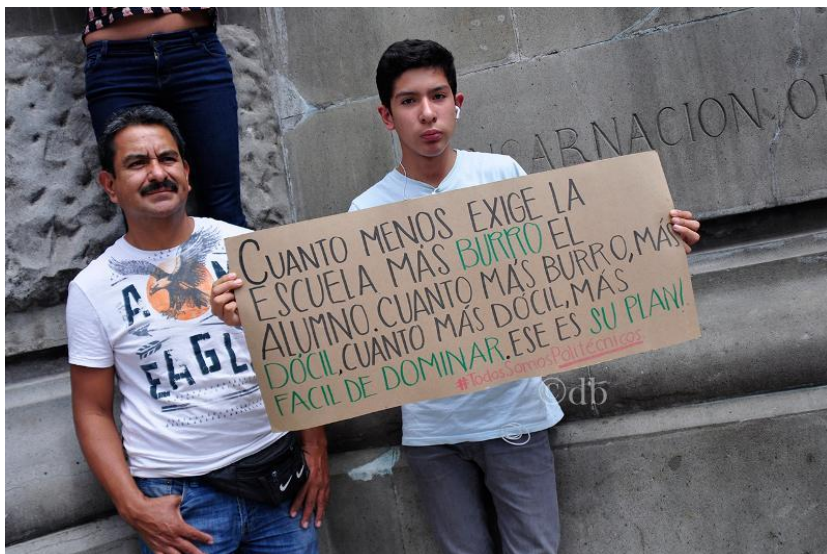 ENCARNACION O
CUANTO MENOS EXIGE LA
ESCUELA MÁS BURRO EL
ALUMNO. CUANTO MÁS BURRO, MÁS
DÓCIL, CUANTO MÁS DÓCIL, MÁS
FACIL DE DOMINAR. ESE ES SU PLAN!
#TodosSomosPolitécnicos
A N
EAGL
©db